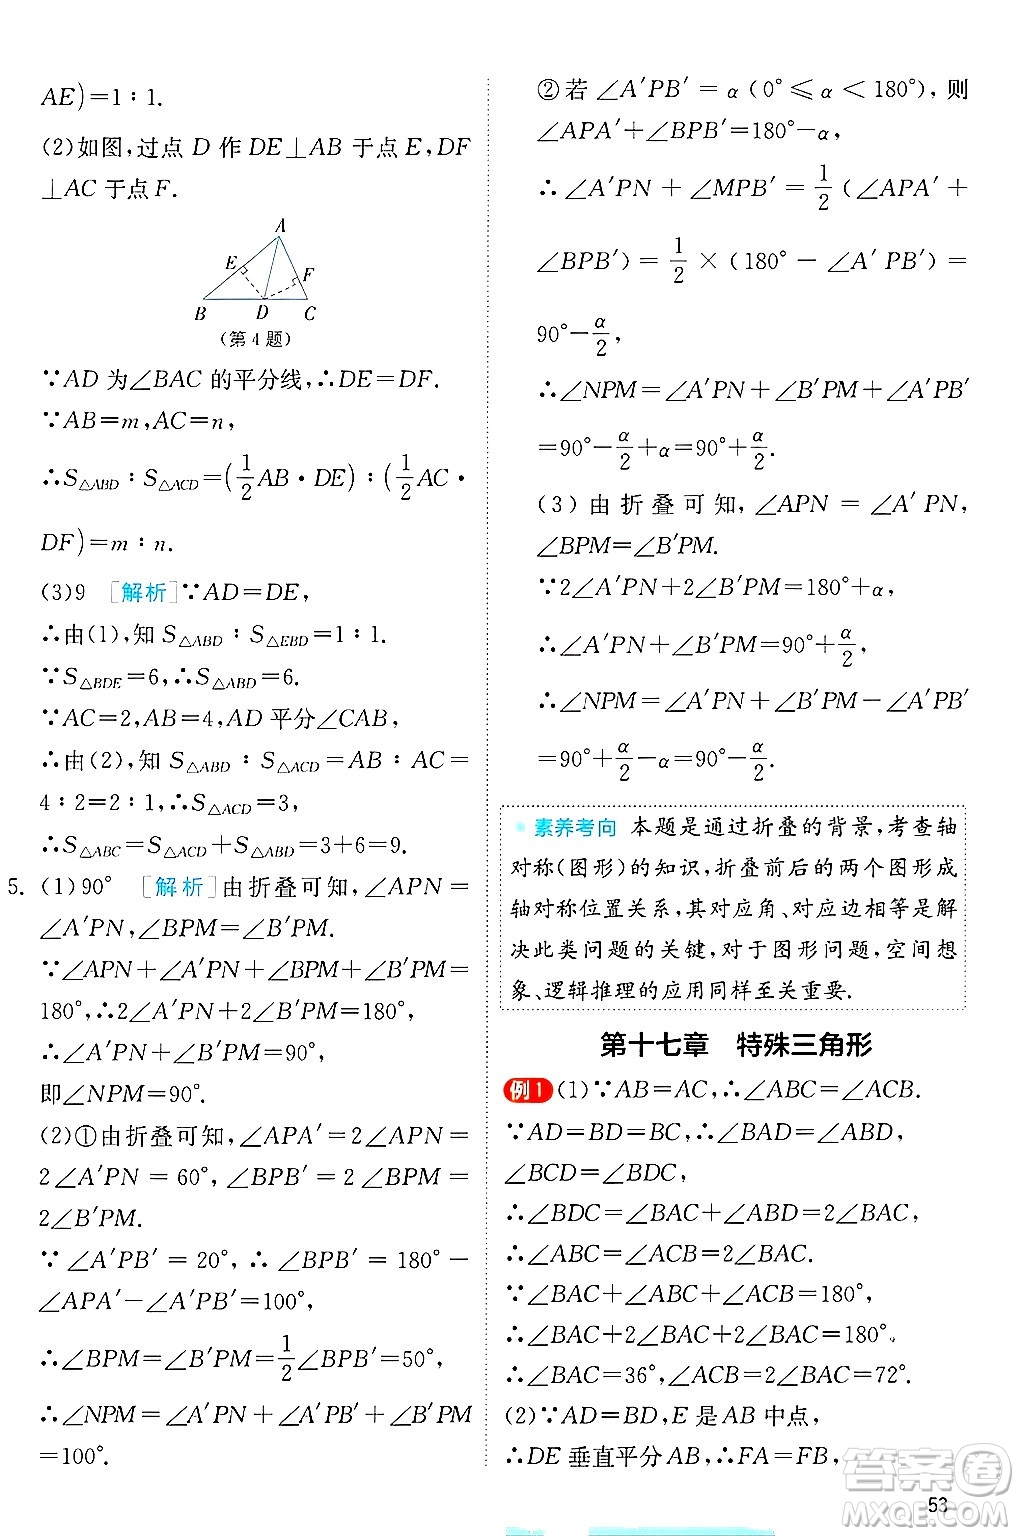 AE)=1∶1.
(2)如图,过点 D 作 DE⊥AB 于点 E,DF
⊥AC 于点 F.
A
E
F
B
D
C
(第 4 题)
∵AD 为∠BAC 的平分线,∴DE=DF.
∵AB=m,AC=n,
∴S△ABD∶S△ACD=(1/2AB·DE)∶(1/2AC·
DF)=m∶n.
(3)9 [解析]∵AD=DE,
∴由(1),知 S△ABD∶S△EBD=1∶1.
∵S△BDE=6,∴S△ABD=6.
∵AC=2,AB=4,AD 平分∠CAB,
∴由(2),知 S△ABD∶S△ACD=AB∶AC=
4∶2=2∶1,∴S△ACD=3,
∴S△ABC=S△ABD+S△ACD=3+6=9.
5. (1)90° [解析]由折叠可知,∠APN=
∠A′PN,∠BPM=∠B′PM.
∵∠APN+∠A′PN+∠BPM+∠B′PM=
180°,∴∠A′PN+∠B′PM=90°,
即∠NPM=90°.
(2)①由折叠可知,∠APA′=2∠APN=
2∠A′PN=60°,∠BPB′=2∠BPM=
2∠B′PM.
∵∠A′PB′=20°,∴∠BPB′=180°-
∠APA′-∠A′PB′=100°,
∴∠BPM=∠B′PM=1/2∠BPB′=50°,
∴∠NPM=∠A′PN+∠A′PB′+∠B′PM
=100°.
②若∠A′PB′=α(0°≤α<180°),则
∠APA′+∠BPB′=180°-α,
∴∠A′PN+∠MPB′=1/2(∠APA′+
∠BPB′)=1/2×(180°-∠A′PB′)=
90°-α/2,
∴∠NPM=∠A′PN+∠B′PM+∠A′PB′
=90°-α/2+α=90°+α/2.
(3)由折叠可知,∠APN=∠A′PN,
∠BPM=∠B′PM.
∵2∠A′PN+2∠B′PM=180°+α,
∴∠A′PN+∠B′PM=90°+α/2,
∴∠NPM=∠A′PN+∠B′PM-∠A′PB′
=90°+α/2-α=90°-α/2.
素养考向 本题是通过折叠的背景,考查轴
对称(图形)的知识,折叠前后的两个图形成
轴对称位置关系,其对应角、对应边相等是解
决此类问题的关键,对于图形问题,空间想
象、逻辑推理的应用同样至关重要.
第十七章 特殊三角形
例1 (1)∵AB=AC,∴∠ABC=∠ACB.
∵AD=BD=BC,∴∠BAD=∠ABD,
∠BCD=∠BDC,
∴∠BDC=∠BAC+∠ABD=2∠BAC,
∴∠ABC=∠ACB=2∠BAC.
∵∠BAC+∠ABC+∠ACB=180°,
∴∠BAC+2∠BAC+2∠BAC=180°,
∴∠BAC=36°,∠ACB=2∠BAC=72°.
(2)∵AD=BD,E 是 AB 中点,
∴DE 垂直平分 AB,∴FA=FB,
53
答案圈
MXQE.COM